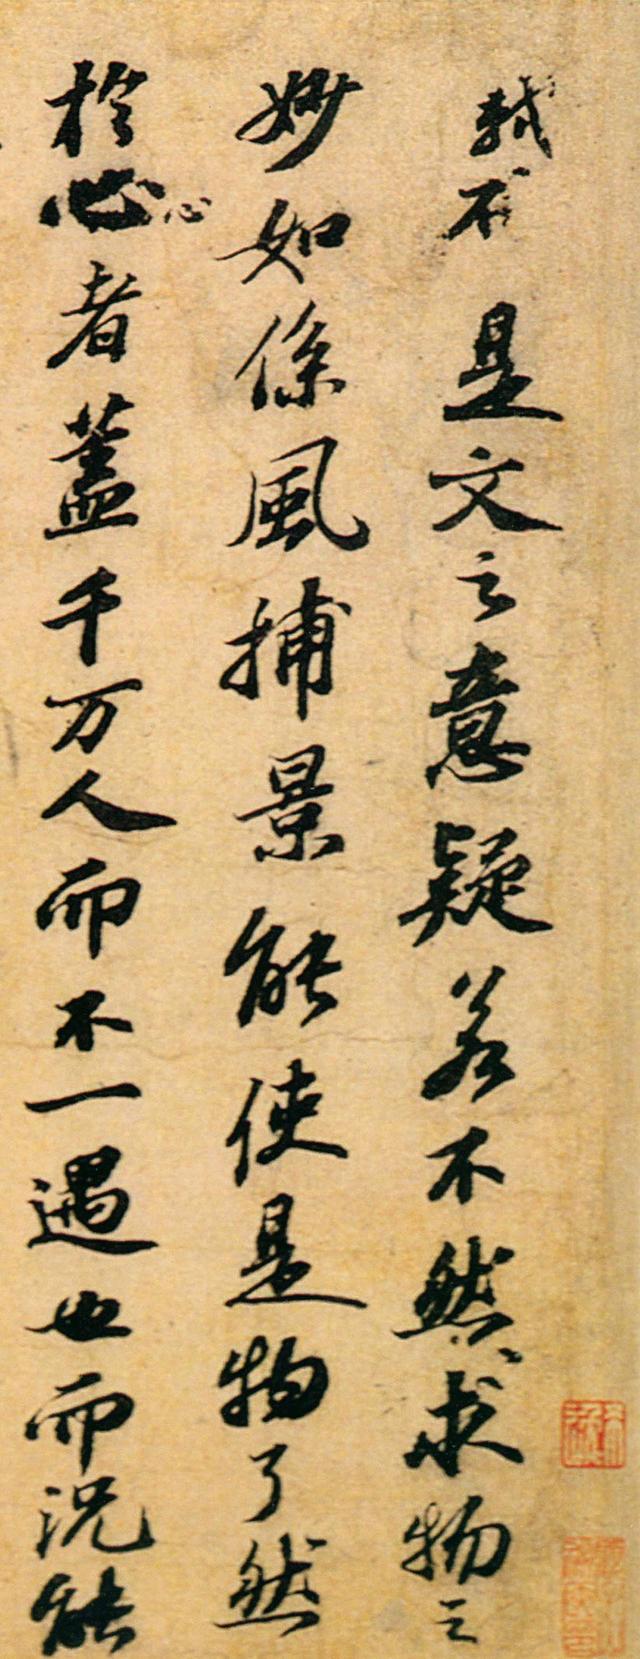 軾不 是文之意疑若不然求物之
妙如係風捕景能使是物了然
於心心者蓋千万人而不一遇也而況能